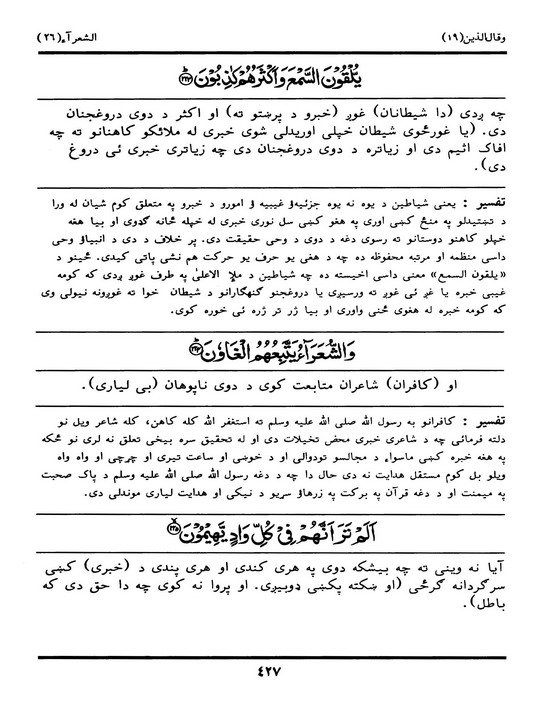 وقال‌الذين(۱۹)
الشعرآء(۲٦)
يُّلْقُوْنَ السَّمْعَ وَاَكْثَرُهُمْ كٰذِبُوْنَ ﴿۲۲۳﴾
چه ږدی (دا شیطانان) غوږ (خبرو د پرښتو ته) او اکثر د دوی دروغجنان
دی. (یا غورځوی شیطان خپلی اوریدلی شوی خبری له ملائکو کاهنانو ته چه
افاک اثیم دی او زیاتره د دوی دروغجنان دی چه زیاتری خبری ئی دروغ
دی).
تفسیر : یعنی شیاطین د یوه نه یوه جزئیهٔ غیبیه ؤ امورو د خبرو په متعلق کوم شیان له ورا
د تښتیدلو په منځ کښی اوری په هغو کښی سل نوری خبری له خپله ځانه ګډوی او بیا هغه
خپلو کاهنو دوستانو ته رسوی دغه د دوی د وحی حقیقت دی. پر خلاف د دی د انبیاؤ وحی
داسی منظمه او مرتبه محفوظه ده چه د هغی یو حرف یو حرکت هم نشی پاتی کیدی. ځینو د
«یلقون السمع» معنی داسی اخیسته ده چه شیاطین د ملإ الاعلیٰ په طرف غوږ ږدی که کومه
غیبی خبره یا غږ ئی غوږ ته ورسیږی یا دروغجنو ګنهګارانو د شیطان خوا ته غوږونه نیولی وی
که کومه خبره له هغوی څخه واوری او بیا ژر تر ژره ئی خوره کوی.
وَالشُّعَرَآءُ يَتَّبِعُهُمُ الْغَاوٗنَ ﴿۲۲۴﴾
او (کافران) شاعران متابعت کوی د دوی ناپوهان (بی لیاری).
تفسیر : کافرانو به رسول الله صلی الله علیه وسلم ته استغفر الله کله کاهن، کله شاعر ویل نو
دلته فرمائی چه د شاعری خبری محض تخیلات دی او له تحقیق سره بیخی تعلق نه لری نو ځکه
په هغه خبره کښی ماسواء د مجالسو تودوالی او د خوښی او ساعت تیری او چرچو او واه واه
ویلو بل کوم مستقل هدایت نه دی حال دا چه د دغه رسول الله صلی الله علیه وسلم د پاک صحبت
په میمنت او د دغه قرآن په برکت په زرهاؤ سړیو د نیکی او هدایت لیاری موندلی دی.
اَلَمْ تَرَ اَنَّهُمْ فِيْ كُلِّ وَادٍ يَّهِيْمُوْنَ ﴿۲۲۵﴾
آیا نه وینی ته چه بیشکه دوی په هری کندی او هری پندی د (خبری) کښی
سرګردانه ګرځی (او ښکته پکښی ډوبیږی. او پروا نه کوی چه دا حق دی که
باطل).
٤۲۷